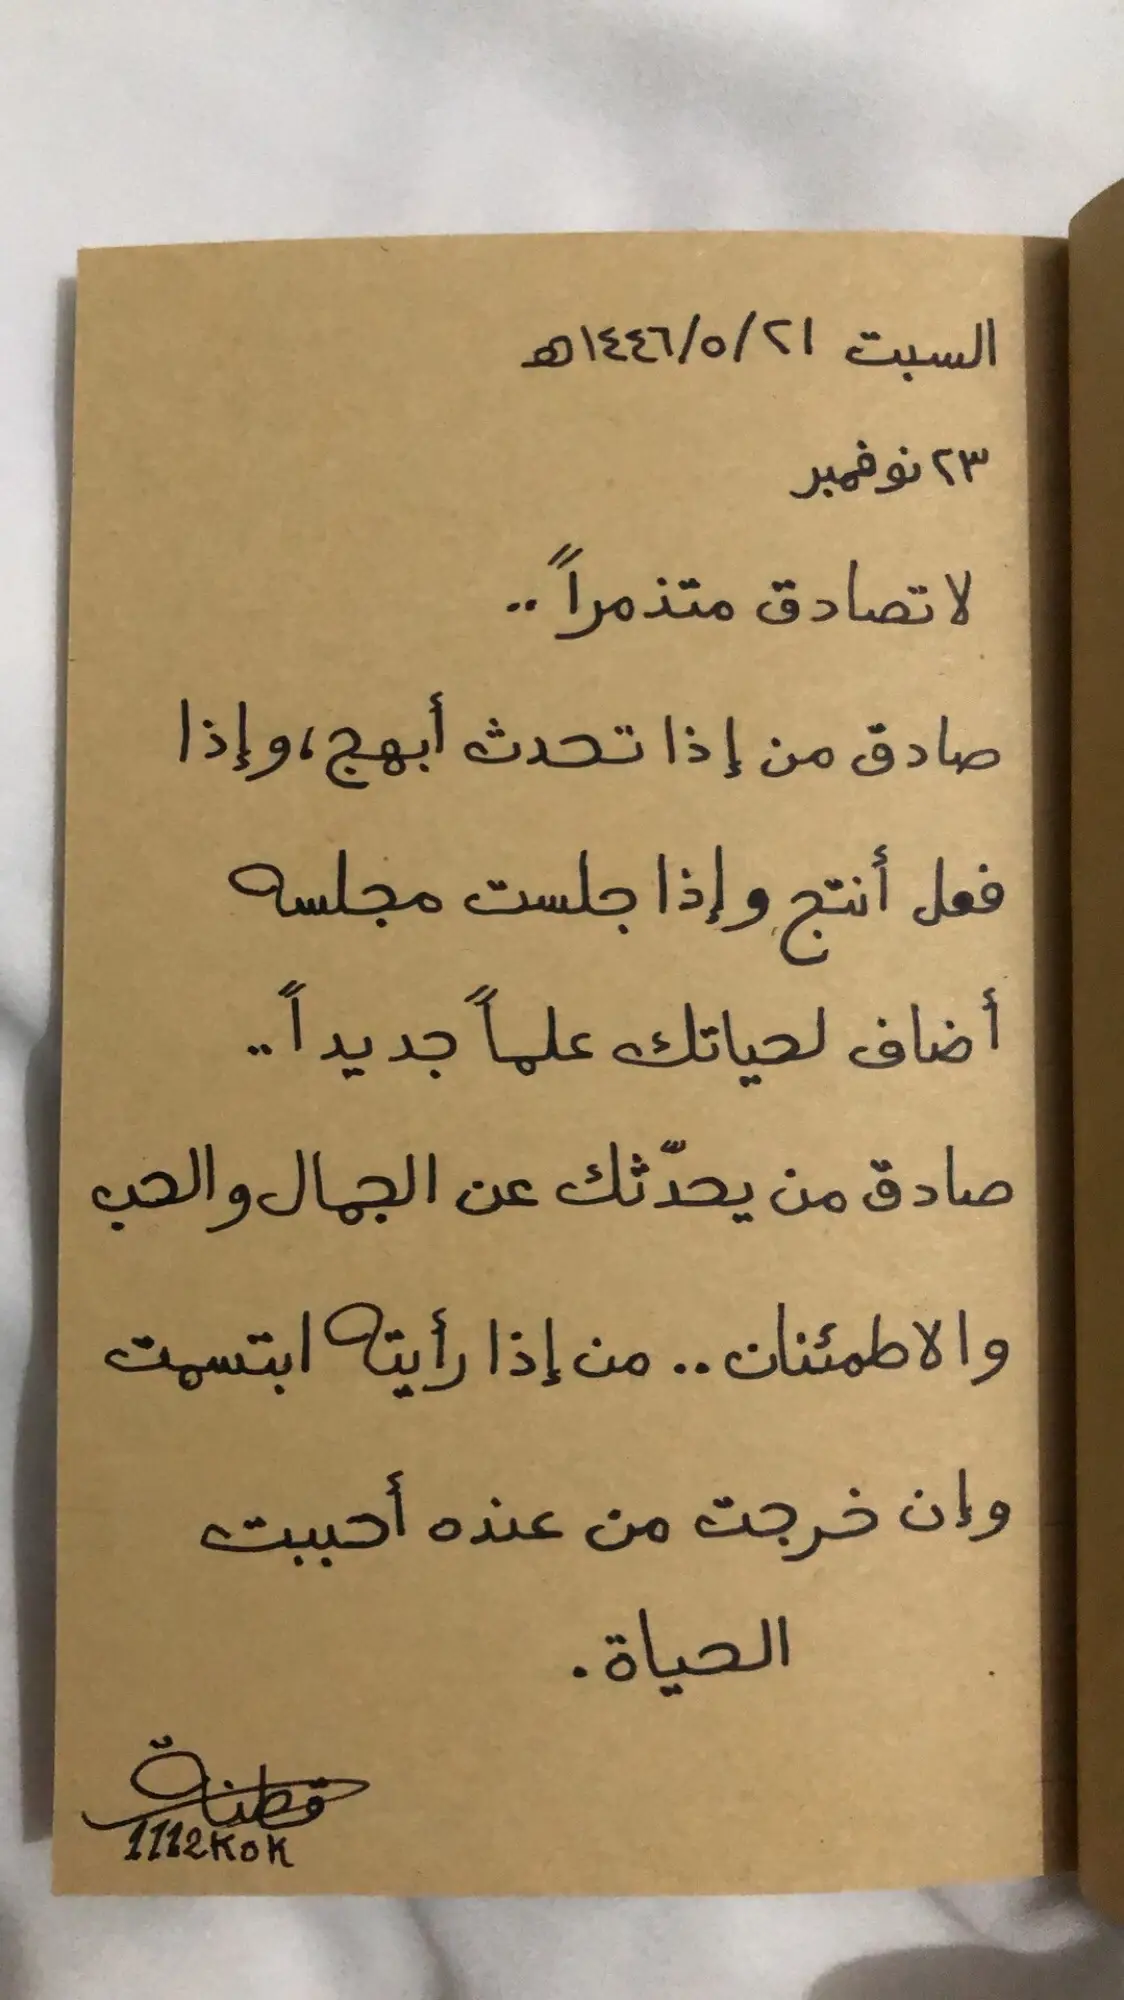 السبت ٢١/٥/١٤٤٦هـ
٢٣ نوفمبر
لا تصادق متذمراً ..
صادق من إذا تحدث أبهج، وإذا
فعل أنتج وإذا جلست مجلسه
أضاف لحياتك علماً جديداً ..
صادق من يحدّثك عن الجمال والحب
والاطمئنان .. من إذا رأيته ابتسمت
وإن خرجت من عنده أحببت
الحياة .
قطنة
1112KoK